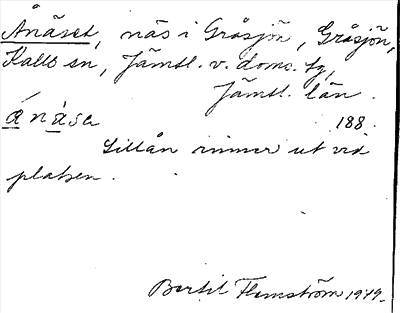 Ånäset, näs i Gråsjön, Gråsjön,
Kalls sn, Jämtl. v. doms. tg,
Jämtl. län.
ånäsa 188.
Lillån rinner ut vid
platsen.
Bertil Flemström 1979.